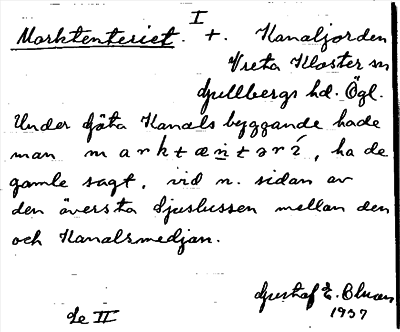 I
Marktenteriet. +. Kanaljorden
Vreta Kloster sn
Gullbergs hd. Ögl.
Under Göta Kanals byggande hade
man marktæntəri, ha de
gamle sagt, vid n. sidan av
den översta Sjuslussen mellan den
och Kanalsmedjan.
Gustaf E. Bluan
1937
Se II